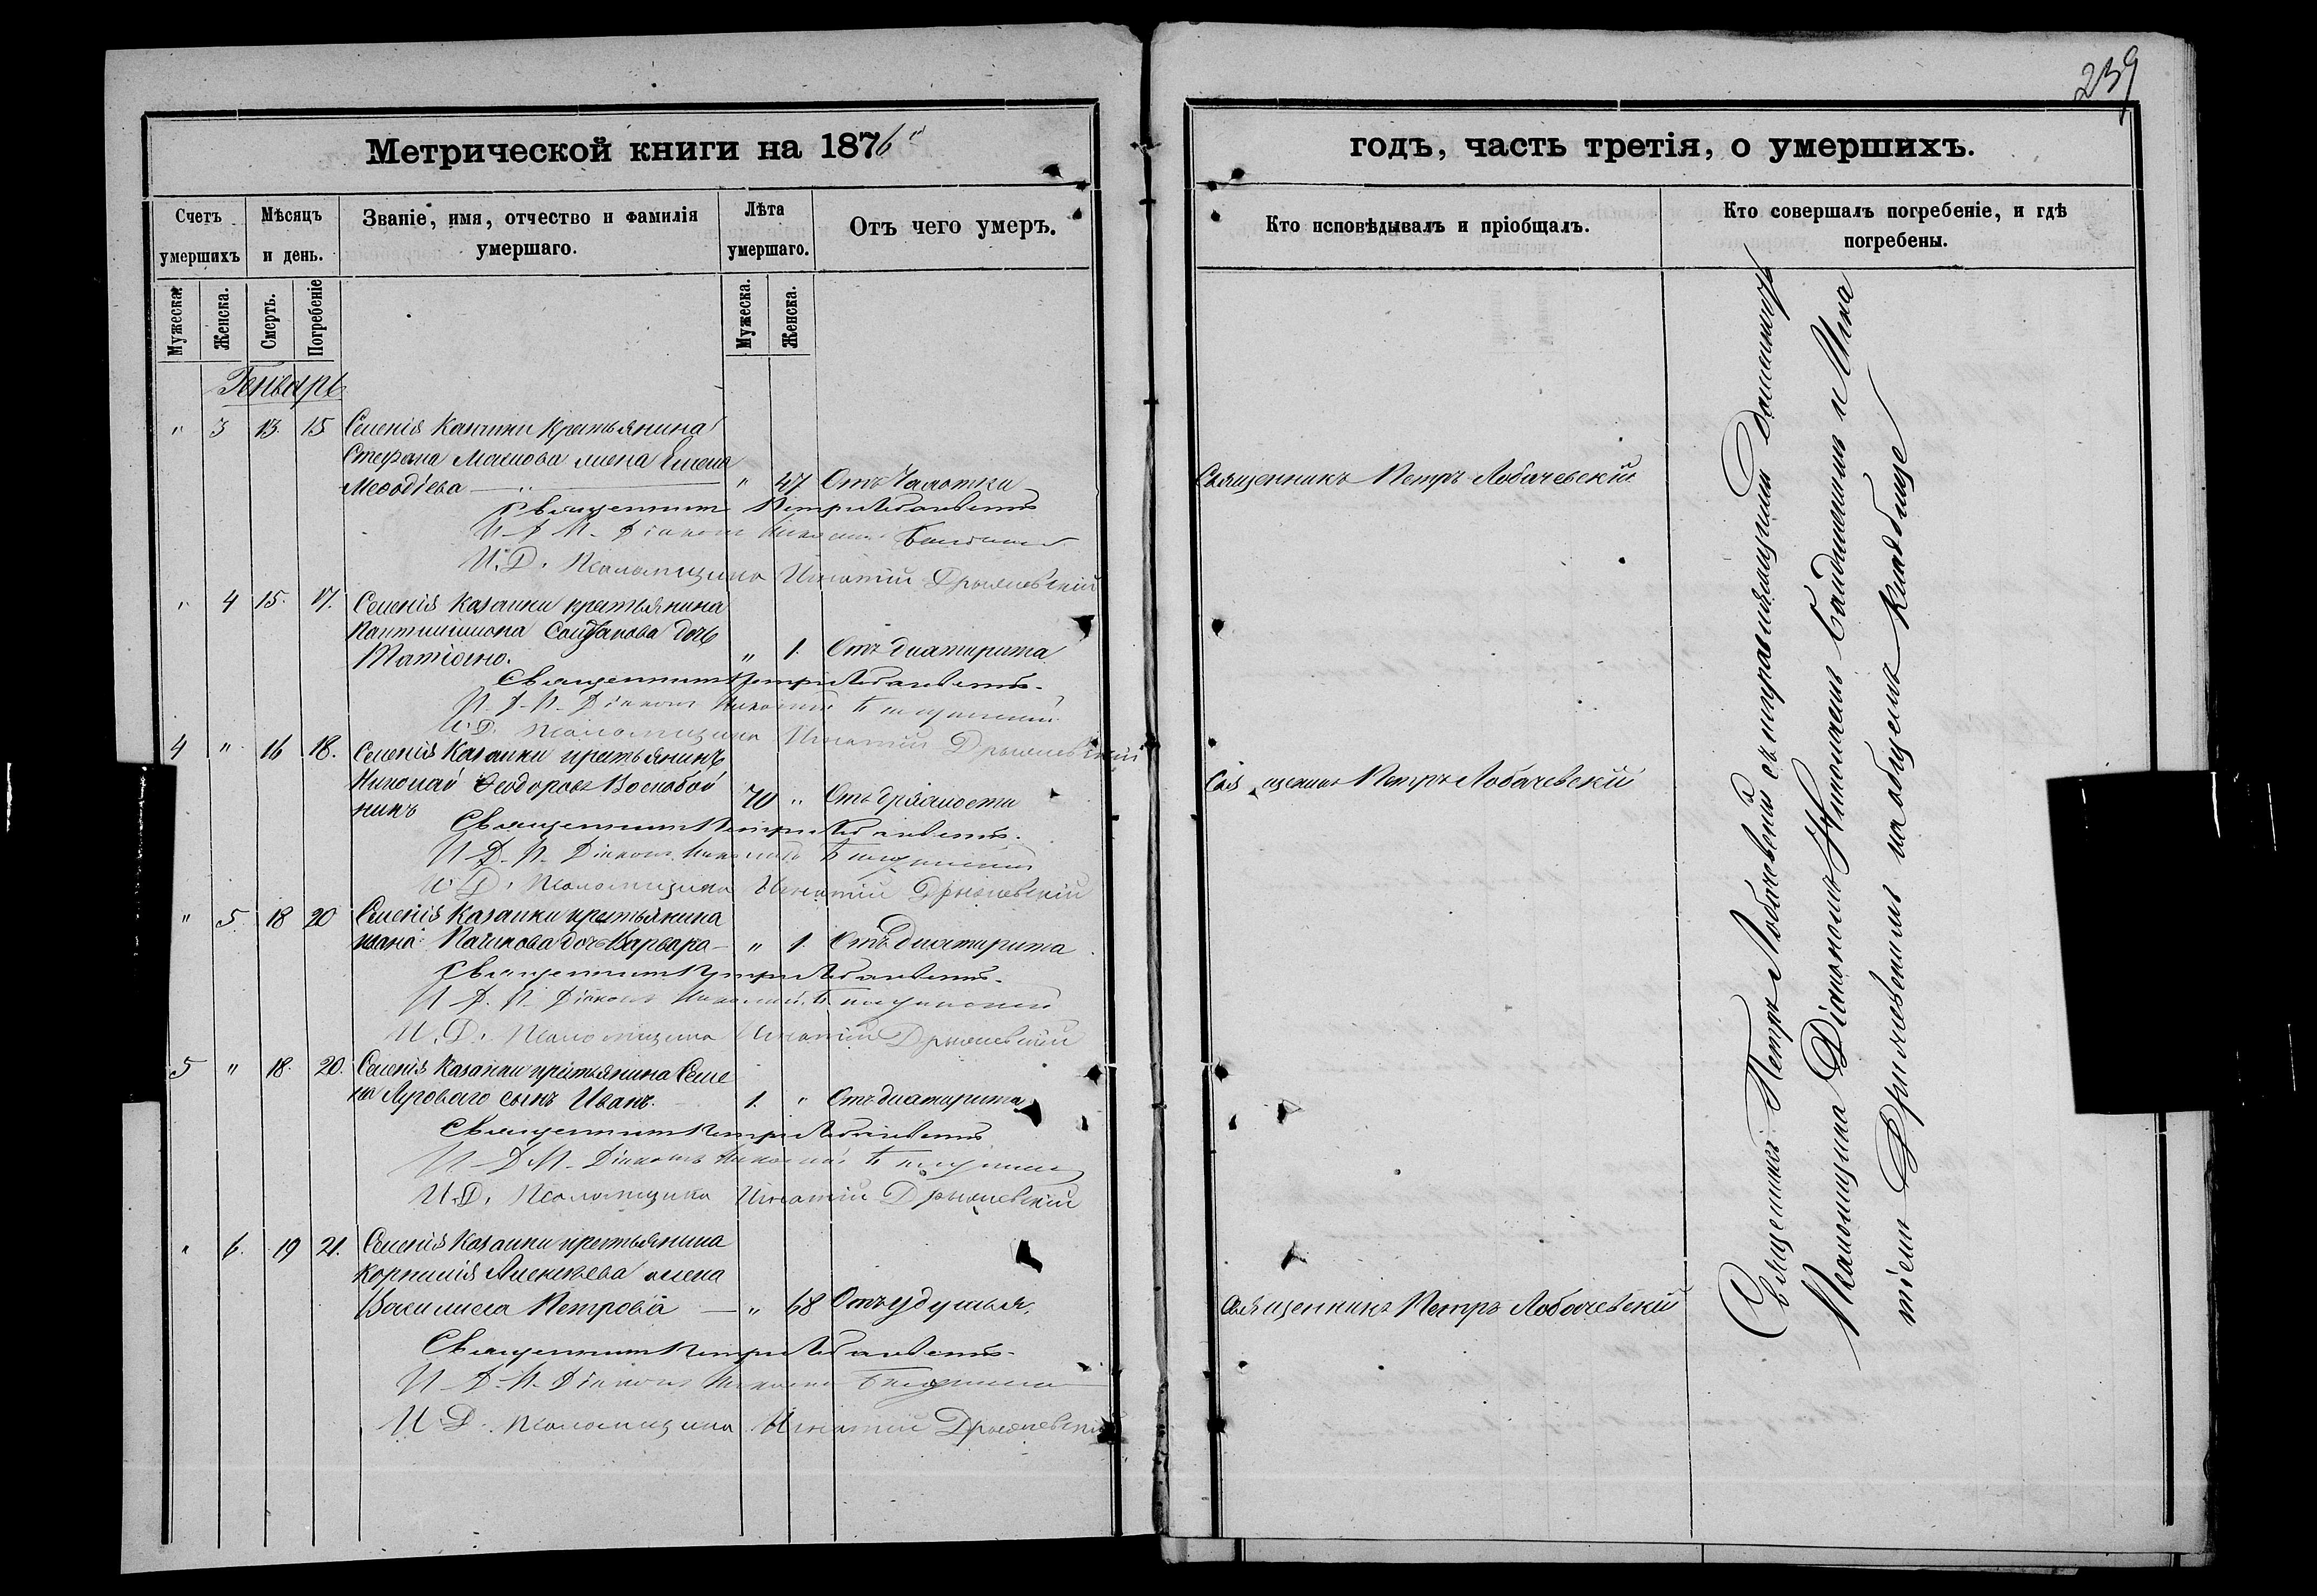 239
Метрической книги на 1876й
годъ, часть третія, о умершихъ.
Счетъ умершихъ
Мѣсяцъ и день.
Званіе, имя, отчество и фамилія умершаго.
Лѣта умершаго.
Отъ чего умеръ.
Кто исповѣдывалъ и пріобщалъ.
Кто совершалъ погребеніе, и гдѣ погребены.
Мужеска.
Женска.
Смерть.
Погребеніе
Мужеска.
Женска.
Генварь
" 3 13. 15 Селенія Казанки крестьянина
Стефана жена Елена
Меѳодіева " 47 Отъ Чахотки Священникъ Петръ Лобачевскій
Священникъ Петръ Лобачевскій
И. Д. П. Діаконъ Николай
И. Д. Псаломщика Игнатій
" 4 15. 17. Селенія Казанки крестьянина
дочь
Татіана. " 1. Отъ дифтерита
Священникъ Петръ Лобачевскій
И. Д. П. Діаконъ Николай
И. Д. Псаломщика Игнатій
4 " 16 18. Селенія Казанки крестьянинъ
Николай Ѳеодоровъ Воскобой
никъ 70 " Отъ дряхлости Священникъ Петръ Лобачевскій
Священникъ Петръ Лобачевскій
И. Д. П. Діаконъ Николай
И. Д. Псаломщика Игнатій
" 5. 18 20 Селенія Казанки крестьянина
Ивана дочь Варвара " 1. Отъ дифтерита
Священникъ Петръ Лобачевскій
И. Д. П. Діаконъ Николай
И. Д. Псаломщика Игнатій
5 " 18. 20. Селенія Казанки крестьянина Семе
на Луговаго сынъ Иванъ. 1. " Отъ дифтерита
Священникъ Петръ Лобачевскій
И. Д. П. Діаконъ Николай
И. Д. Псаломщика Игнатій
" 6. 19 21. Селенія Казанки крестьянина
Корнилія Алексѣева жена
Василиса Петрова " 68 Отъ удушья. Священникъ Петръ Лобачевскій
Священникъ Петръ Лобачевскій
И. Д. П. Діаконъ Николай
И. Д. Псаломщика Игнатій
Священникъ Петръ Лобачевскій съ исправляющими должность
Псаломщика Діакономъ Николаемъ и Игна
тіемъ на общемъ кладбище